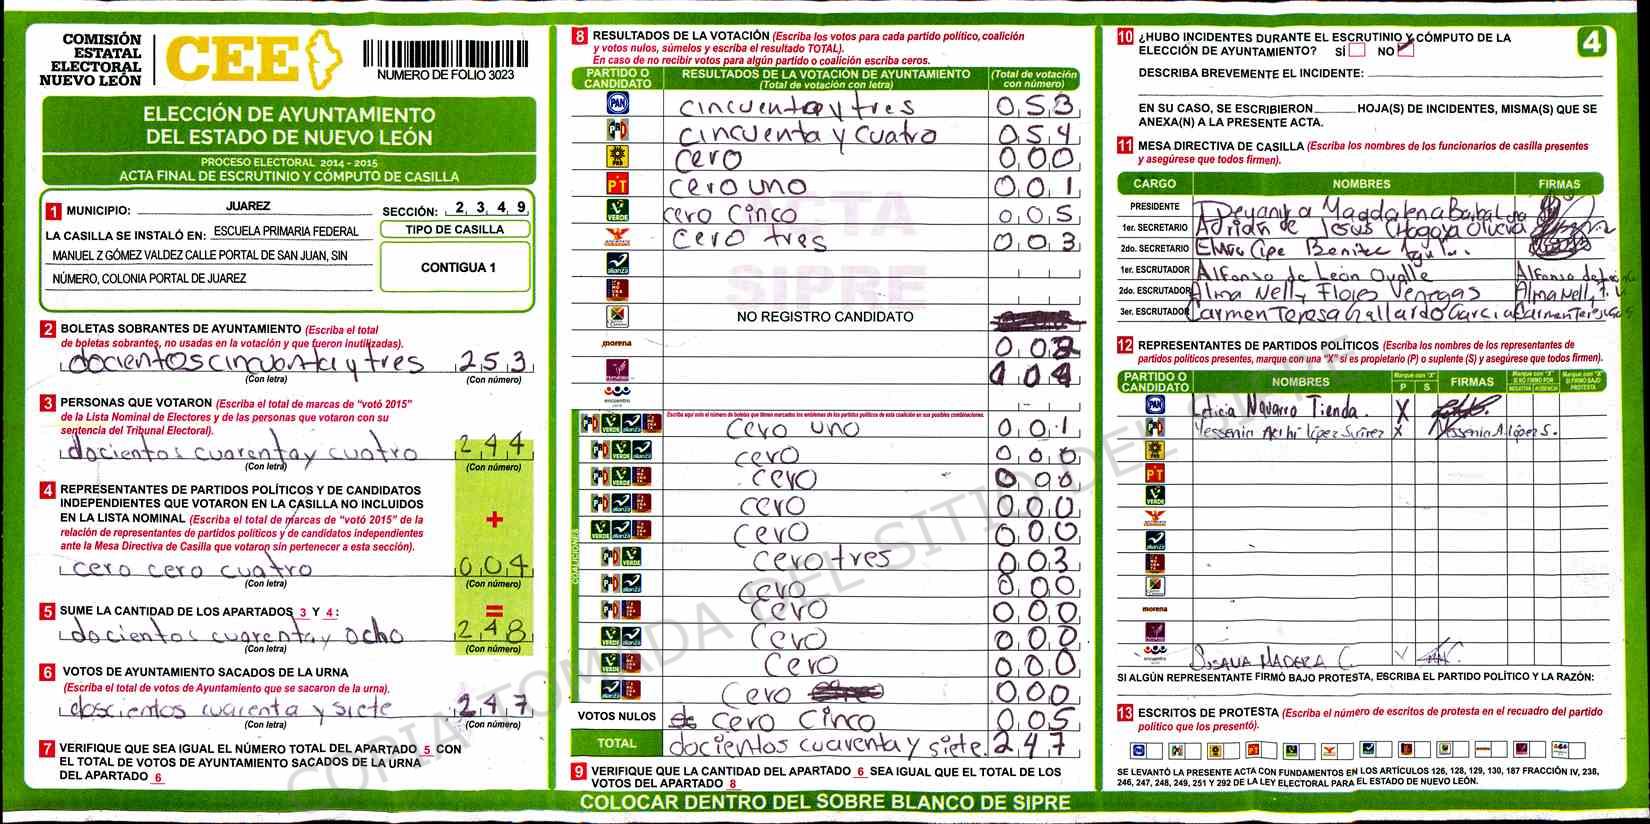 COMISIÓN
ESTATAL
ELECTORAL
NUEVO LEÓN
CEE
NUMERO DE FOLIO 3023
ELECCIÓN DE AYUNTAMIENTO
DEL ESTADO DE NUEVO LEÓN
PROCESO ELECTORAL 2014 - 2015
ACTA FINAL DE ESCRUTINIO Y CÓMPUTO DE CASILLA
1 MUNICIPIO: JUAREZ SECCIÓN: 2 3 4 9
LA CASILLA SE INSTALÓ EN: ESCUELA PRIMARIA FEDERAL
MANUEL Z GÓMEZ VALDEZ CALLE PORTAL DE SAN JUAN, SIN
NÚMERO, COLONIA PORTAL DE JUAREZ
TIPO DE CASILLA
CONTIGUA 1
2 BOLETAS SOBRANTES DE AYUNTAMIENTO (Escriba el total
de boletas sobrantes, no usadas en la votación y que fueron inutilizadas).
docientos cincuenta y tres 253
(Con letra) (Con número)
3 PERSONAS QUE VOTARON (Escriba el total de marcas de "votó 2015"
de la Lista Nominal de Electores y de las personas que votaron con su
sentencia del Tribunal Electoral).
docientos cuarenta y cuatro 244
(Con letra) (Con número)
4 REPRESENTANTES DE PARTIDOS POLÍTICOS Y DE CANDIDATOS
INDEPENDIENTES QUE VOTARON EN LA CASILLA NO INCLUIDOS
EN LA LISTA NOMINAL (Escriba el total de marcas de "votó 2015" de la
relación de representantes de partidos políticos y de candidatos independientes
ante la Mesa Directiva de Casilla que votaron sin pertenecer a esta sección).
+
cero cero cuatro 004
(Con letra) (Con número)
5 SUME LA CANTIDAD DE LOS APARTADOS 3 Y 4 :
=
docientos cuarenta y ocho 248
(Con letra) (Con número)
6 VOTOS DE AYUNTAMIENTO SACADOS DE LA URNA
(Escriba el total de votos de Ayuntamiento que se sacaron de la urna).
doscientos cuarenta y siete 247
(Con letra) (Con número)
7 VERIFIQUE QUE SEA IGUAL EL NÚMERO TOTAL DEL APARTADO 5 CON
EL TOTAL DE VOTOS DE AYUNTAMIENTO SACADOS DE LA URNA
DEL APARTADO 6
8 RESULTADOS DE LA VOTACIÓN (Escriba los votos para cada partido político, coalición
y votos nulos, súmelos y escriba el resultado TOTAL).
En caso de no recibir votos para algún partido o coalición escriba ceros.
PARTIDO O CANDIDATO RESULTADOS DE LA VOTACIÓN DE AYUNTAMIENTO (Total de votación con letra) (Total de votación con número)
PAN cincuenta y tres 053
PRD cincuenta y cuatro 054
PRD cero 000
PT cero uno 001
VERDE cero cinco 005
cero tres 003
alianza
NO REGISTRO CANDIDATO
morena
104
encuentro
Escriba aquí solo el número de boletas que tienen marcados los emblemas de los partidos políticos de esta coalición en sus posibles combinaciones.
COALICIONES
cero uno 001
cero 000
cero 000
cero 000
cero 000
cero tres 003
cero 000
cero 000
cero 000
cero 000
cero 000
VOTOS NULOS cero cinco 005
TOTAL docientos cuarenta y siete. 247
9 VERIFIQUE QUE LA CANTIDAD DEL APARTADO 6 SEA IGUAL QUE EL TOTAL DE LOS
VOTOS DEL APARTADO 8
COLOCAR DENTRO DEL SOBRE BLANCO DE SIPRE
ACTA
SIPRE
COPIA TOMADA DEL SITIO DEL SIPRE
10 ¿HUBO INCIDENTES DURANTE EL ESCRUTINIO Y CÓMPUTO DE LA
ELECCIÓN DE AYUNTAMIENTO? SÍ NO
4
DESCRIBA BREVEMENTE EL INCIDENTE:
EN SU CASO, SE ESCRIBIERON HOJA(S) DE INCIDENTES, MISMA(S) QUE SE
ANEXA(N) A LA PRESENTE ACTA.
11 MESA DIRECTIVA DE CASILLA (Escriba los nombres de los funcionarios de casilla presentes
y asegúrese que todos firmen).
CARGO NOMBRES FIRMAS
PRESIDENTE Deyanira Magdalena
1er. SECRETARIO Adrián de Jesus
2do. SECRETARIO Benitez
1er. ESCRUTADOR Alfonso de León Ovalle Alfonso de León
2do. ESCRUTADOR Alma Nelly Flores Venegas Alma Nelly F. V
3er. ESCRUTADOR Carmen Teresa Gallardo Garcia Carmen Teresa
12 REPRESENTANTES DE PARTIDOS POLÍTICOS (Escriba los nombres de los representantes de
partidos políticos presentes, marque con una "X" si es propietario (P) o suplente (S) y asegúrese que todos firmen).
PARTIDO O CANDIDATO NOMBRES Marque con "X" P S FIRMAS
Leticia Navarro Tienda. X
Yessenia López Suárez X Yessenia A. López S.
morena
encuentro
SUSANA MADERA C
SI ALGÚN REPRESENTANTE FIRMÓ BAJO PROTESTA, ESCRIBA EL PARTIDO POLÍTICO Y LA RAZÓN:
13 ESCRITOS DE PROTESTA (Escriba el número de escritos de protesta en el recuadro del partido
político que los presentó).
SE LEVANTÓ LA PRESENTE ACTA CON FUNDAMENTOS EN LOS ARTÍCULOS 126, 128, 129, 130, 187 FRACCIÓN IV, 238,
246, 247, 248, 249, 251 Y 292 DE LA LEY ELECTORAL PARA EL ESTADO DE NUEVO LEÓN.